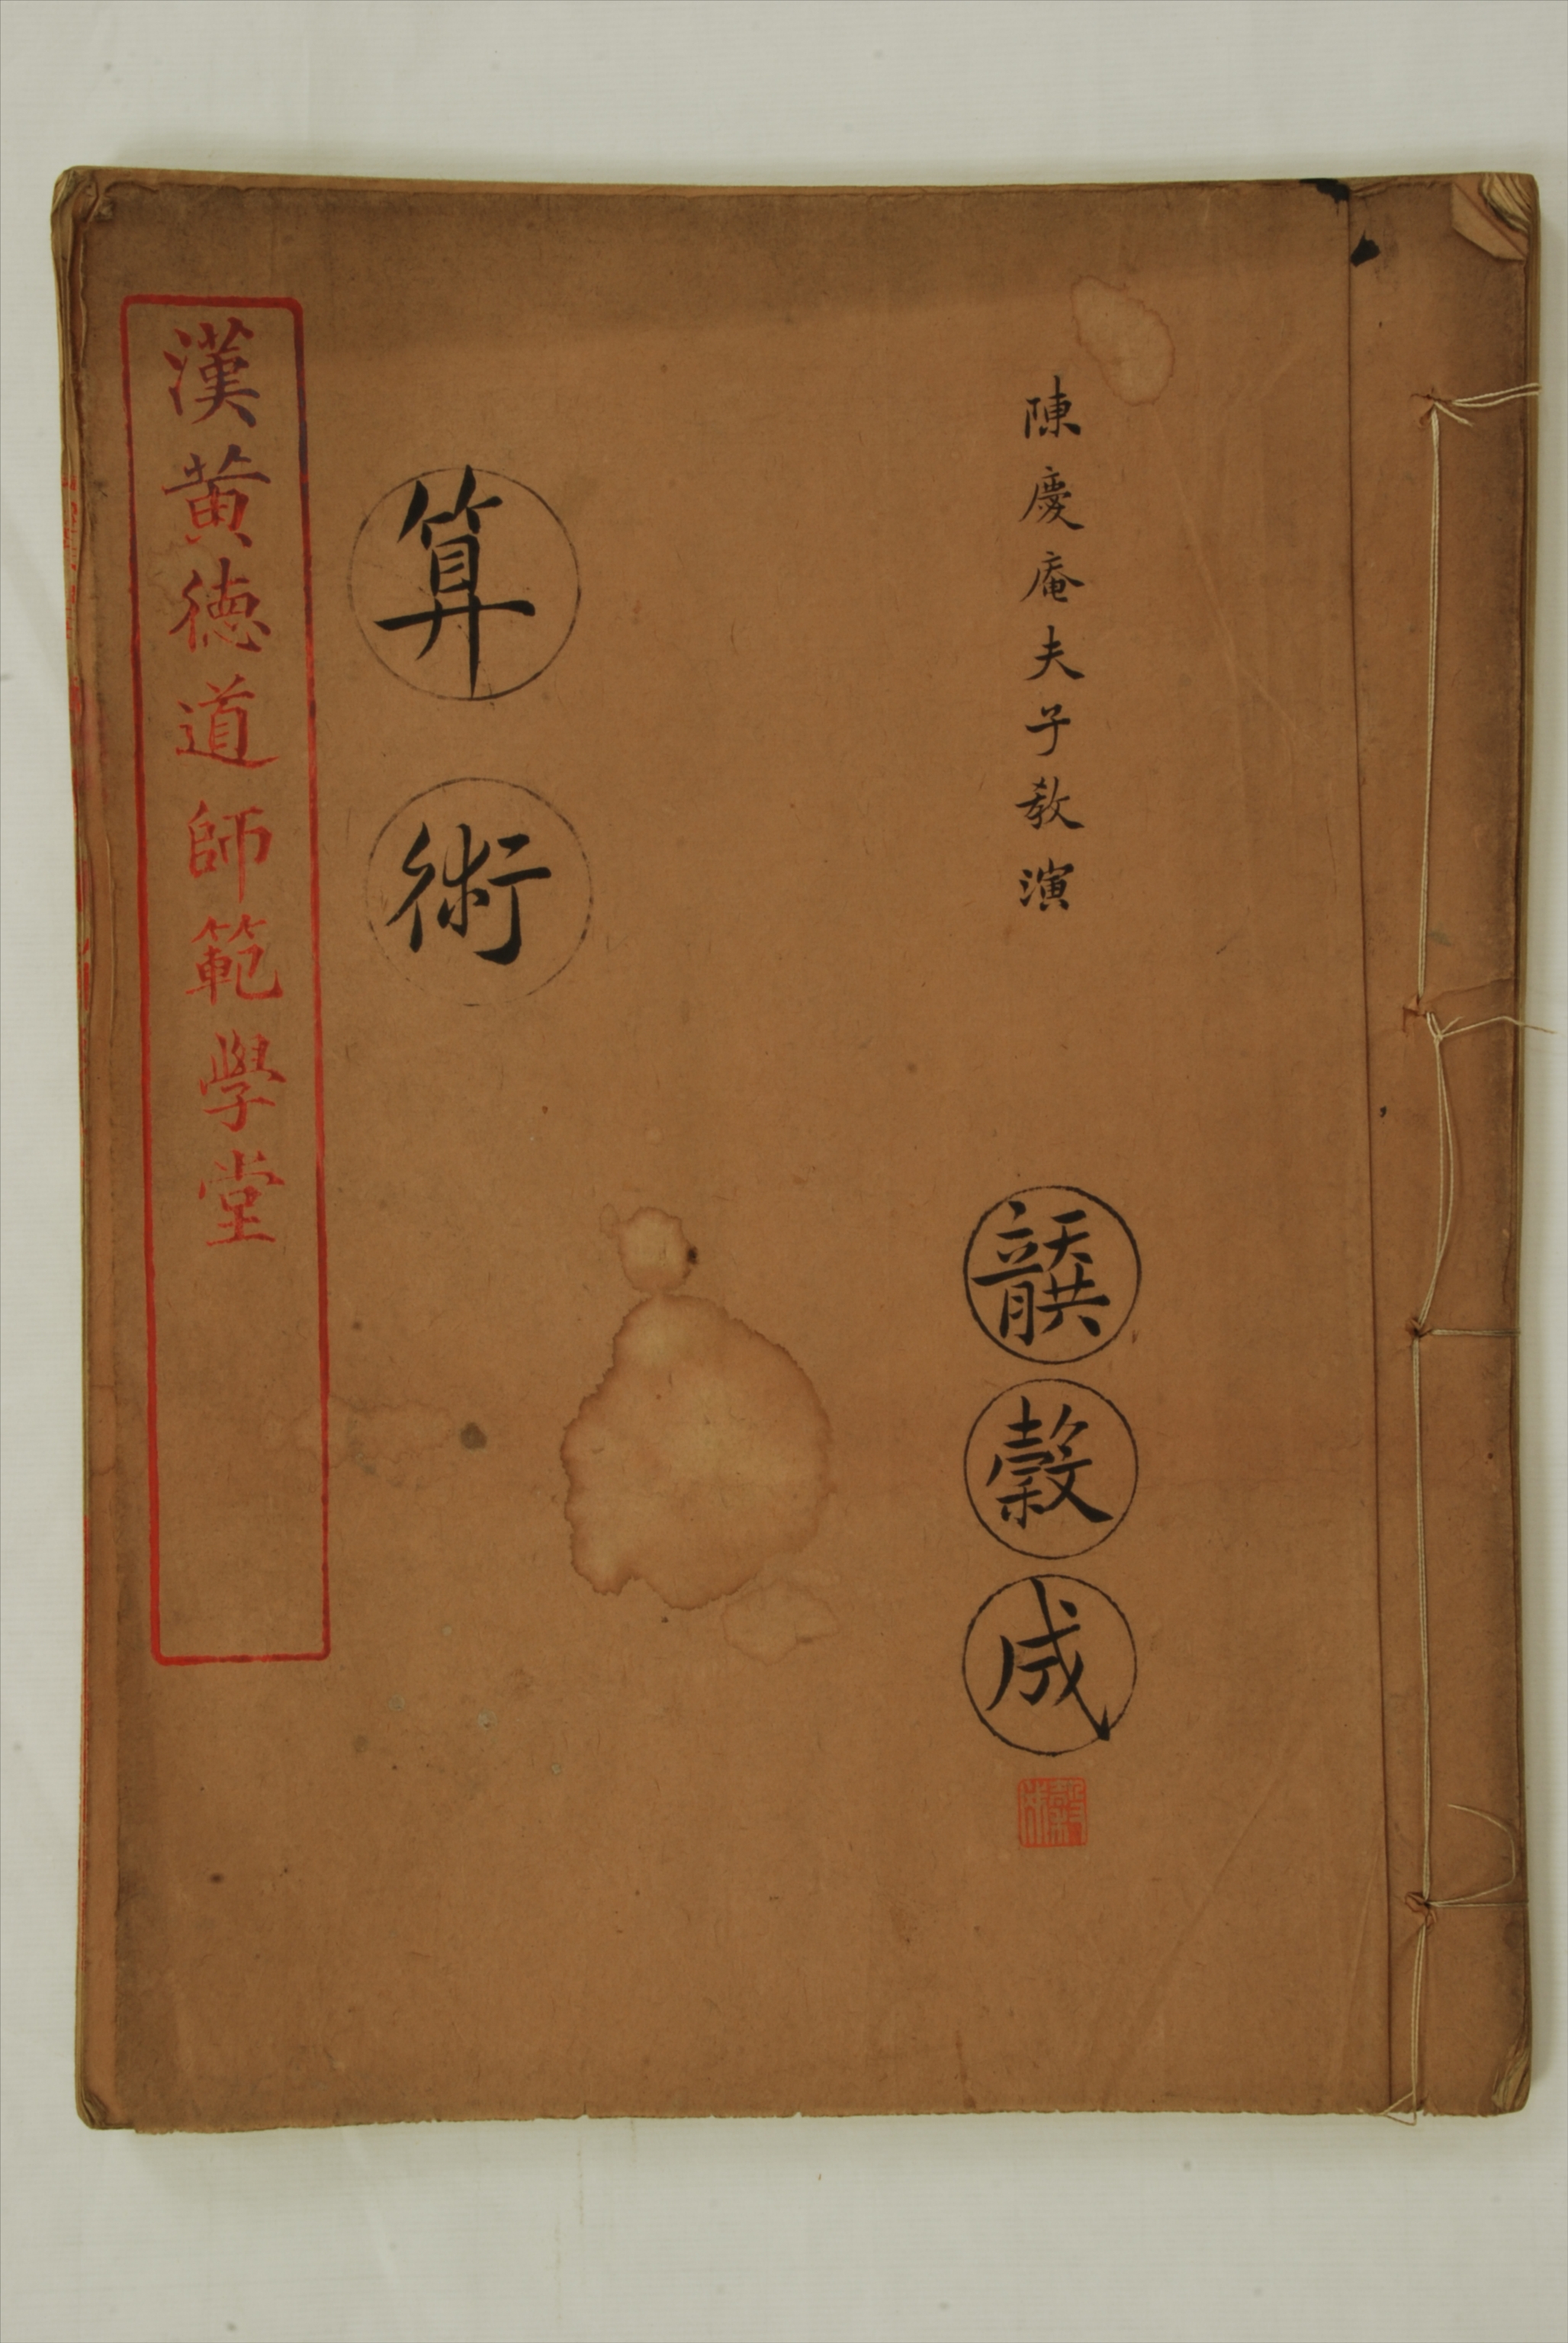 陳慶庵夫子教演
龔穀成
算術
漢黃德道師範學堂